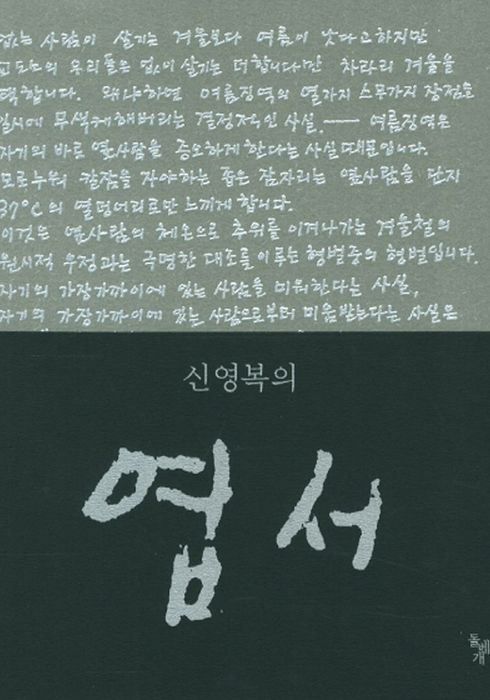 없는 사람이 살기는 겨울보다 여름이 낫다고 하지만
교도소의 우리들은 없이 살기는 더합니다만 차라리 겨울을
택합니다. 왜냐하면 여름징역의 열가지 스무가지 장점을
일시에 무색케해버리는 결정적인 사실.── 여름징역은
자기의 바로 옆사람을 증오하게 한다는 사실때문입니다.
모로누워 칼잠을 자야하는 좁은 잠자리는 옆사람을 단지
37°C의 열덩어리로만 느끼게 합니다.
이것은 옆사람의 체온으로 추위를 이겨나가는 겨울철의
원시적 우정과는 극명한 대조를 이루는 형벌중의 형벌입니다.
자기의 가장가까이에 있는 사람을 미워한다는 사실,
자기의 가장가까이에 있는 사람으로부터 미움받는다는 사실은
신영복의
엽서
돌베개